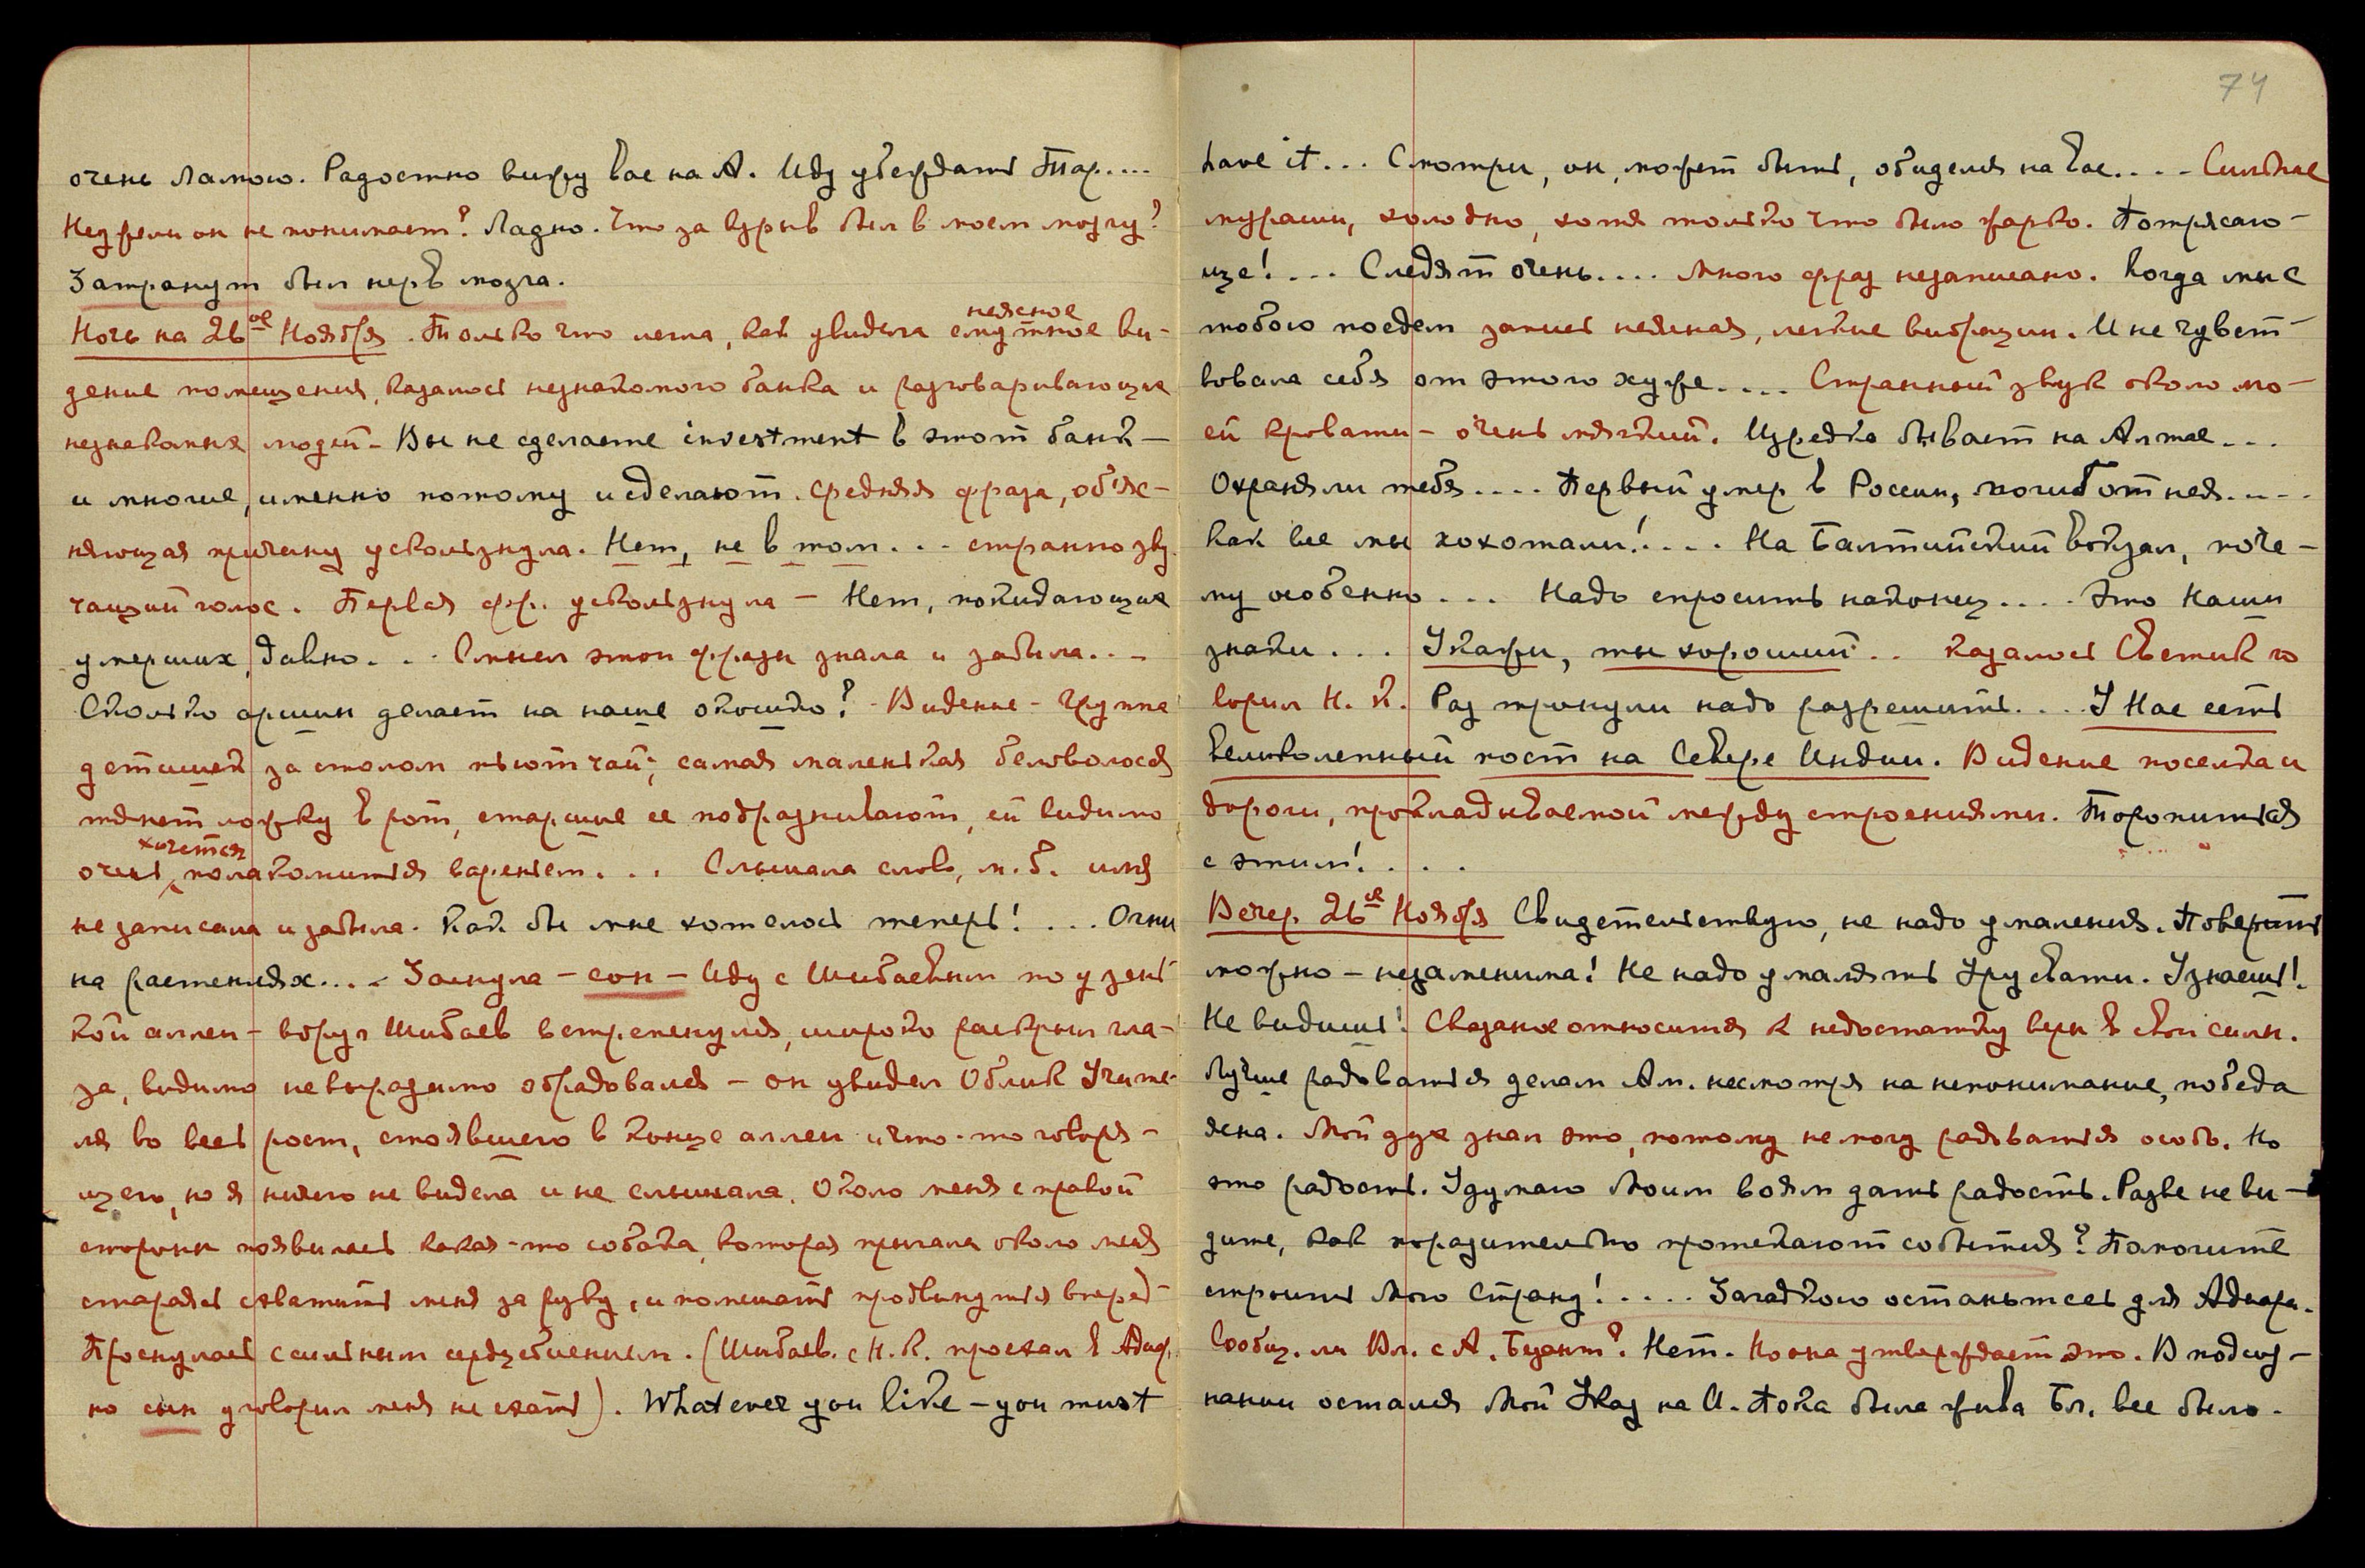 очень Ламою. Радостно вижу вас на А. Иду утверждать Тар....
Неужели он не понимает? Ладно. Что за взрыв был в моем мозгу?
Затронут был нерв мозга.
неясное
Ночь на 26ое Ноября. Только что легла, как увидела смутное ви-
дение помещения, казалось незнакомого банка и разговаривающих
незнакомых людей - Вы не сделаете investment в этот банк -
и многие, именно потому и сделают. Средняя фраза, объяс-
няющая причину ускользнула. Нет, не в том... странно зву-
чащий голос. Первая фр. ускользнула - Нет, покидающих
умерших, давно... Смысл этой фразы знала и забыла...
Сколько аршин делает на наше окошко? - Видение - группа
детишек за столом пьют чай; самая маленькая беловолосая
тянет ложку в рот, старшие ее подразнивают, ей видимо
хочется
очень полакомиться вареньем... Слышала слово, м.б. имя
не записала и забыла. Как бы мне хотелось теперь! ... Огни
на растениях.... Заснула - сон - Иду с Шибаевым по узень-
кой аллеи - вдруг Шибаев встрепенулся, широко раскрыл гла-
за, видимо невыразимо обрадовался - он увидел Облик Учите-
ля во весь рост, стоявшего в конце аллеи и что-то говоря-
щего, но я ничего не видела и не слышала. Около меня с правой
стороны появилась какая-то собака, которая прыгала около меня
стараясь схватить меня за руку, и помешать продвинуться вперед -
Проснулась с сильным сердцебиением. (Шибаев. с Н.К. проехал в Адьяр,
но сын уговорил меня не ехать). Whatever you like - you must
74
have it... Смотри, он, может быть, обиделся на Вас.... Сильные
мураши, холодно, хотя только что было жарко. Потрясаю-
ще! ... Следят очень.... Много фраз незаписано. Когда мы с
тобою поедем запись неясная, легкие вибрации. И не чувст-
вовала себя от этого хуже.... Странный звук около мо-
ей кровати - очень мягкий. Изредка бывает на Алтае...
Охраняли тебя.... Первый умер в России, погиб от нея....
Как все мы хохотали! .... На Балтийский вокзал, поче-
му особенно... Надо спросить наконец.... Это Наши
знаки... Укажи, ты хороший.. Казалось Светик го
ворил Н. К. Раз тронули надо разрешить.... У Нас есть
великолепный пост на Севере Индии. Видение поселка и
дороги, прокладываемой между строениями. Торопиться
с этим! ....
Вечер. 26ое Ноября Свидетельствую, не надо умаления. Поверить
можно - незаменима! Не надо умалять Урусвати. Узнаешь!
Не видишь! Сказанное относится к недостатку веры в свои силы.
Лучше радоваться делам Ам. несмотря на непонимание, победа
ясна. Мой дух знал это, потому не могу радоваться особо. Но
это радость. Удумаю Моим воям дать радость. Разве не ви-
дите, как поразительно протекают события? Помогите
строить Мою Страну! .... Загадкою останьтесь для Адьяра.
Сообщ. ли Вл. с А. Безант? Нет. Но она утверждает это. В подсоз-
нании остался Мой Указ на И. Пока была жива Бл. все было.